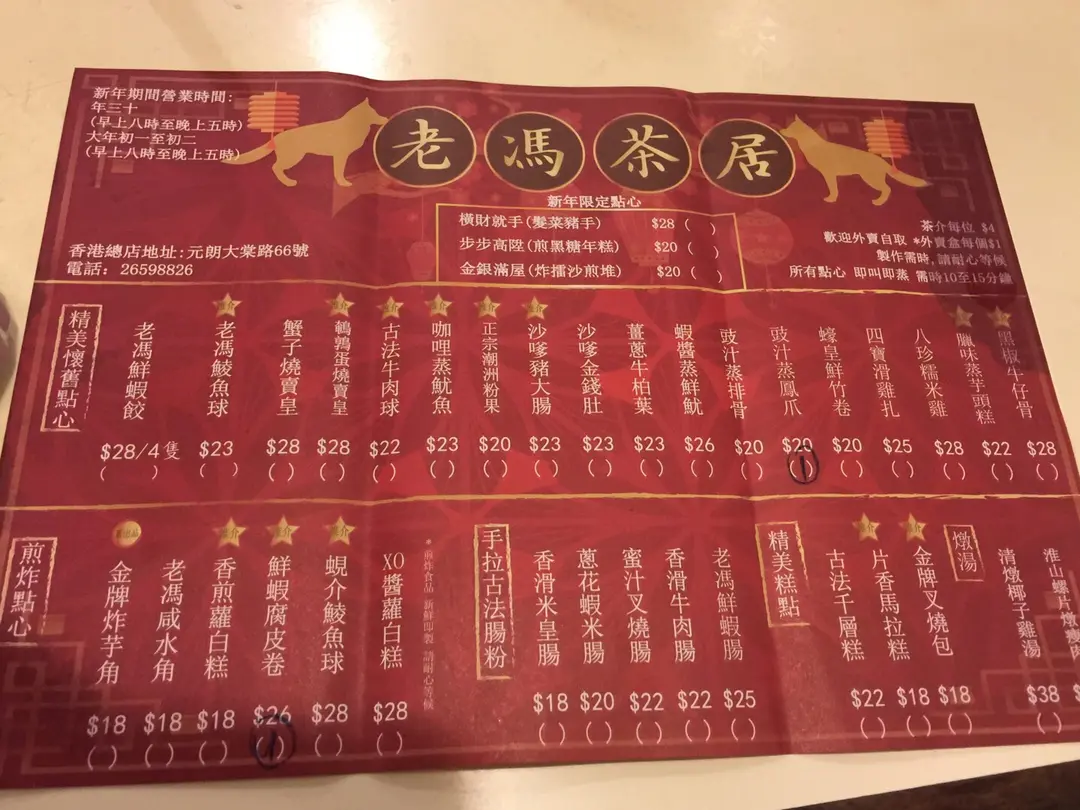 新年期間營業時間:
年三十
(早上八時至晚上五時)
大年初一至初二
(早上八時至晚上五時)
老馮茶居
新年限定點心
橫財就手(髮菜豬手) $28 ( )
步步高陞(煎黑糖年糕) $20 ( )
金銀滿屋(炸擂沙煎堆) $20 ( )
香港總店地址:元朗大棠路66號
電話: 26598826
茶介每位 $4
歡迎外賣自取 *外賣盒每個$1
製作需時,請耐心等候
所有點心 即叫即蒸 需時10至15分鐘
精美懷舊點心
老馮鮮蝦餃 $28/4隻 ( )
推介 老馮鯪魚球 $23 ( )
蟹子燒賣皇 $28 ( )
推介 鵪鶉蛋燒賣皇 $28 ( )
推介 古法牛肉球 $22 ( )
推介 咖哩蒸魷魚 $23 ( )
推介 正宗潮洲粉果 $20 ( )
推介 沙嗲豬大腸 $23 ( )
沙嗲金錢肚 $23 ( )
薑蔥牛柏葉 $23 ( )
蝦醬蒸鮮魷 $26 ( )
豉汁蒸排骨 $20 ( )
豉汁蒸鳳爪 $20 (1)
蠔皇鮮竹卷 $20 ( )
四寶滑雞扎 $25 ( )
八珍糯米雞 $28 ( )
臘味蒸芋頭糕 $22 ( )
黑椒牛仔骨 $28 ( )
煎炸點心
金牌炸芋角 $18 ( )
老馮咸水角 $18 ( )
推介 香煎蘿白糕 $18 ( )
推介 鮮蝦腐皮卷 $26 (1)
推介 蜆介鯪魚球 $28 ( )
XO醬蘿白糕 $28 ( )
*煎炸食品 新鮮即製 請耐心等候
手拉古法腸粉
香滑米皇腸 $18 ( )
蔥花蝦米腸 $20 ( )
蜜汁叉燒腸 $22 ( )
香滑牛肉腸 $22 ( )
老馮鮮蝦腸 $25 ( )
精美糕點
古法千層糕 $22 ( )
推介 片香馬拉糕 $18 ( )
推介 金牌叉燒包 $18 ( )
燉湯
清燉椰子雞湯 $38 ( )
淮山螺片燉瘦肉